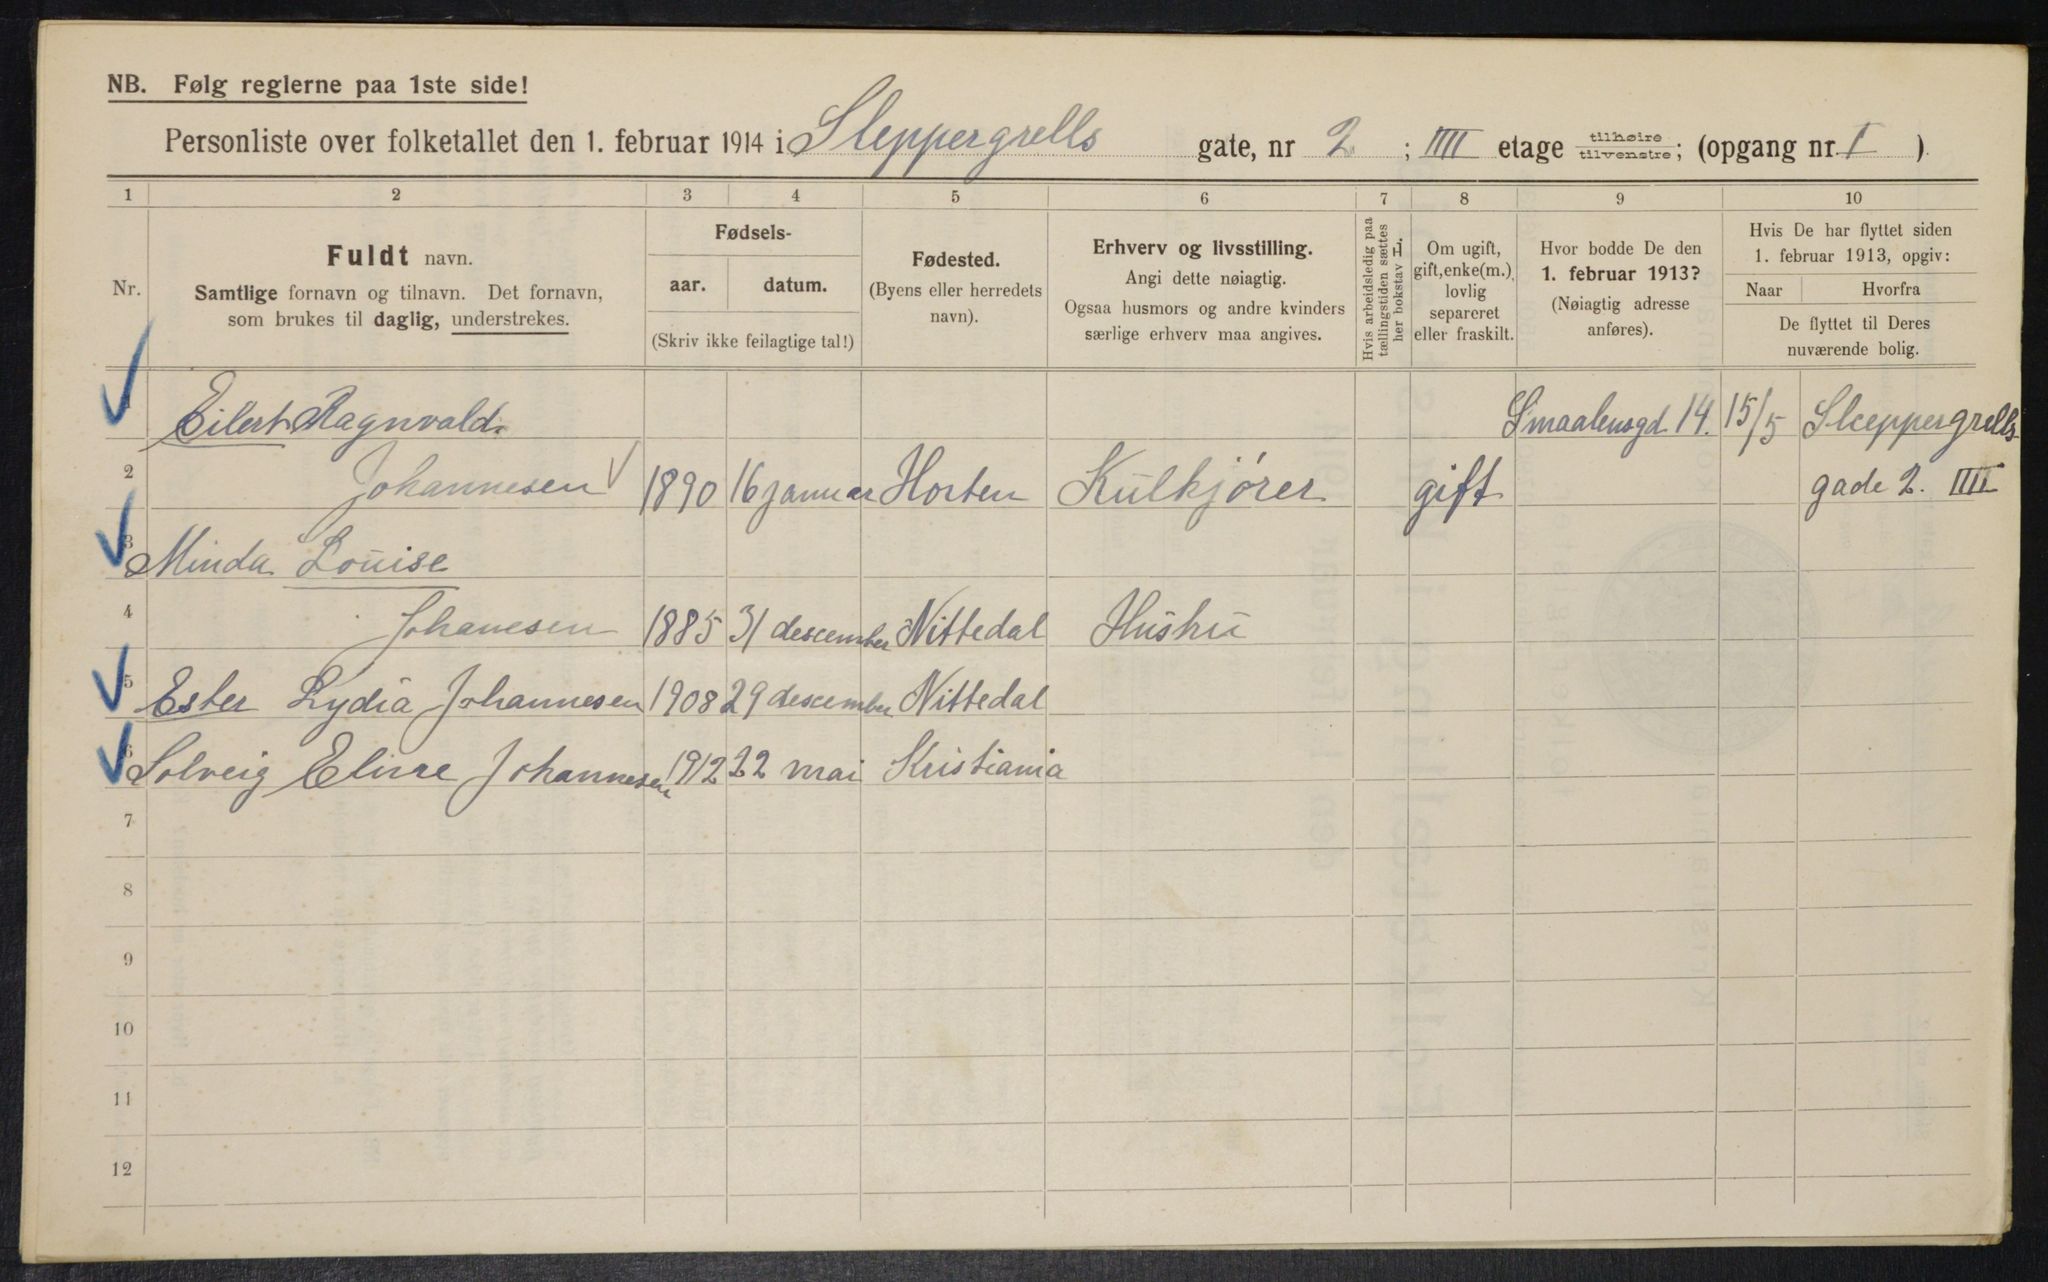 NB. Følg reglerne paa 1ste side!
Personliste over folketallet den 1. februar 1914 i Sleppergrells gate, nr 2 ; IIII etage tilhøire tilvenstre; (opgang nr. I ).
1 2 3 4 5 6 7 8 9 10
Nr.
Fuldt navn.
Samtlige fornavn og tilnavn. Det fornavn,
som brukes til daglig, understrekes.
Fødsels-
aar. datum.
(Skriv ikke feilagtige tal!)
Fødested.
(Byens eller herredets
navn).
Erhverv og livsstilling.
Angi dette nøiagtig.
Ogsaa husmors og andre kvinders
særlige erhverv maa angives.
Hvis arbeidsledig paa
tællingstiden sættes
her bokstav L.
Om ugift,
gift, enke(m.),
lovlig
separeret
eller fraskilt.
Hvor bodde De den
1. februar 1913?
(Nøiagtig adresse
anføres).
Hvis De har flyttet siden
1. februar 1913, opgiv:
Naar Hvorfra
De flyttet til Deres
nuværende bolig.
1 Eilert Ragnvald Smaalensgd. 14. 15/5 Sleppergrells
2 Johannesen 1890 16 januar Horten Kulkjører gift gade 2. IIII
3 Minda Louise
4 Johanesen 1885 31 descember Nittedal Hushu
5 Ester Lydia Johannesen 1908 29 descember Nittedal
6 Solveig Elirae Johannesen 1912 22 mai Kristiania
7
8
9
10
11
12